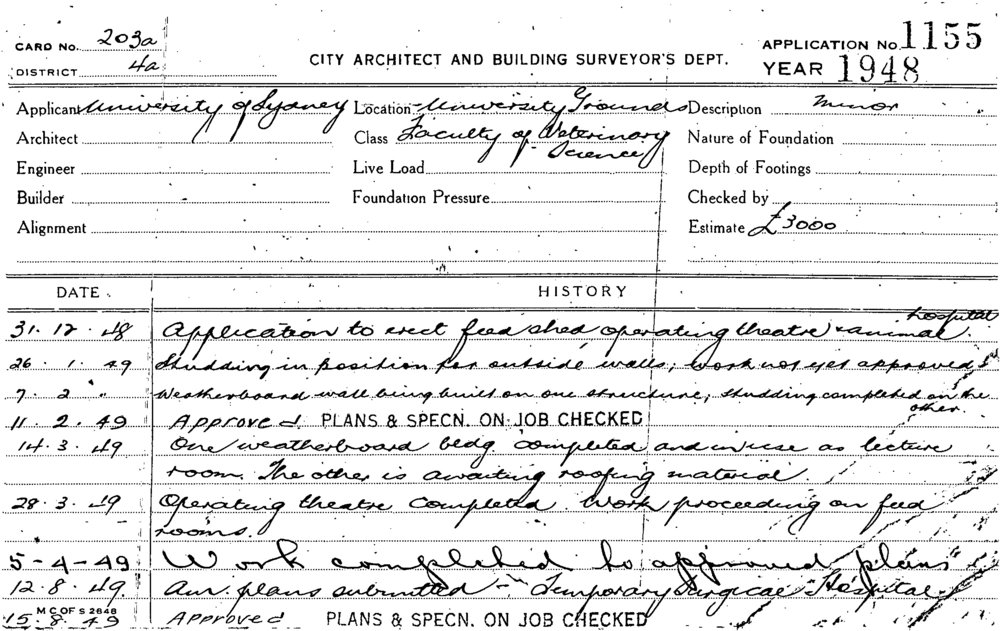 CARD No. 203a
DISTRICT 4a
CITY ARCHITECT AND BUILDING SURVEYOR'S DEPT.
APPLICATION No. 1155
YEAR 1948
Applicant University of Sydney Location University Grounds Description Minor
Architect Class Faculty of Veterinary Science Nature of Foundation
Engineer Live Load Depth of Footings
Builder Foundation Pressure Checked by
Alignment Estimate £3000
DATE HISTORY
31. 12. 48 Application to erect feed shed operating theatre & animal hospital.
26. 1. 49 Studding in position for outside walls; work not yet approved
7. 2 " Weatherboard wall being built on one structure; studding completed on the other.
11. 2. 49 Approved PLANS & SPECN. ON JOB CHECKED
14. 3. 49 One weatherboard bldg. completed and in use as lecture
room. The other is awaiting roofing material.
28. 3. 49 Operating theatre completed. Work proceeding on feed
rooms.
5-4-49 Work completed to approved plans
12. 8. 49 Am. plans submitted - Temporary Surgical Hospital
M C OF S 2848
15. 8. 49 Approved PLANS & SPECN. ON JOB CHECKED